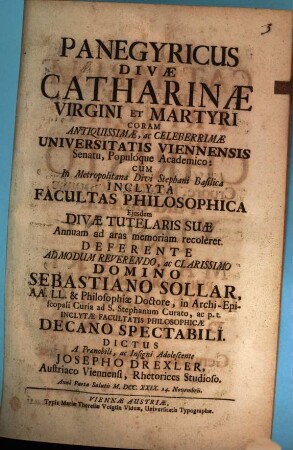 3
PANEGYRICUS
DIVÆ
CATHARINÆ
VIRGINI ET MARTYRI
CORAM
ANTIQUISSIMÆ, ac CELEBERRIMÆ
UNIVERSITATIS VIENNENSIS
Senatu, Populoque Academico:
CUM
In Metropolitana Divi Stephani Basilica
INCLYTA
FACULTAS PHILOSOPHICA
Ejusdem
DIVÆ TUTELARIS SUÆ
Annuam ad aras memoriam recoleret.
DEFERENTE
ADMODUM REVERENDO, ac CLARISSIMO
DOMINO
SEBASTIANO SOLLAR,
AA. LL. & Philosophiæ Doctore, in Archi-Epi-
scopali Curia ad S. Stephanum Curato, ac p. t.
INCLYTÆ FACULTATIS PHILOSOPHICÆ
DECANO SPECTABILI.
DICTUS
A Prænobili, ac Insigni Adolescente
JOSEPHO DREXLER,
Austriaco Viennensi, Rhetorices Studioso.
Anno Partæ Salutis M. DCC. XXIX. 24. Novembris.
VIENNÆ AUSTRIÆ,
Typis Mariæ Theresiæ Voigtin Viduæ, Universitatis Typographæ.